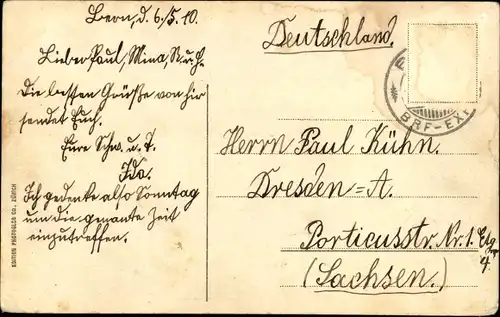 Bern, d. 6./5. 10.
Lieber Paul, Mina, K. u. H.
Die besten Grüße von hir
sendet Euch.
Eure Schw. u. T.
Ida.
Ich gedenke also Sonntag
um die genante Zeit
einzutreffen.
EDITION PHOTOGLOB CO., ZÜRICH
Deutschland.
BRF-EX
Herrn Paul Kühn.
Dresden=A.
Porticusstr. Nr. 1. Etg.
4.
(Sachsen.)